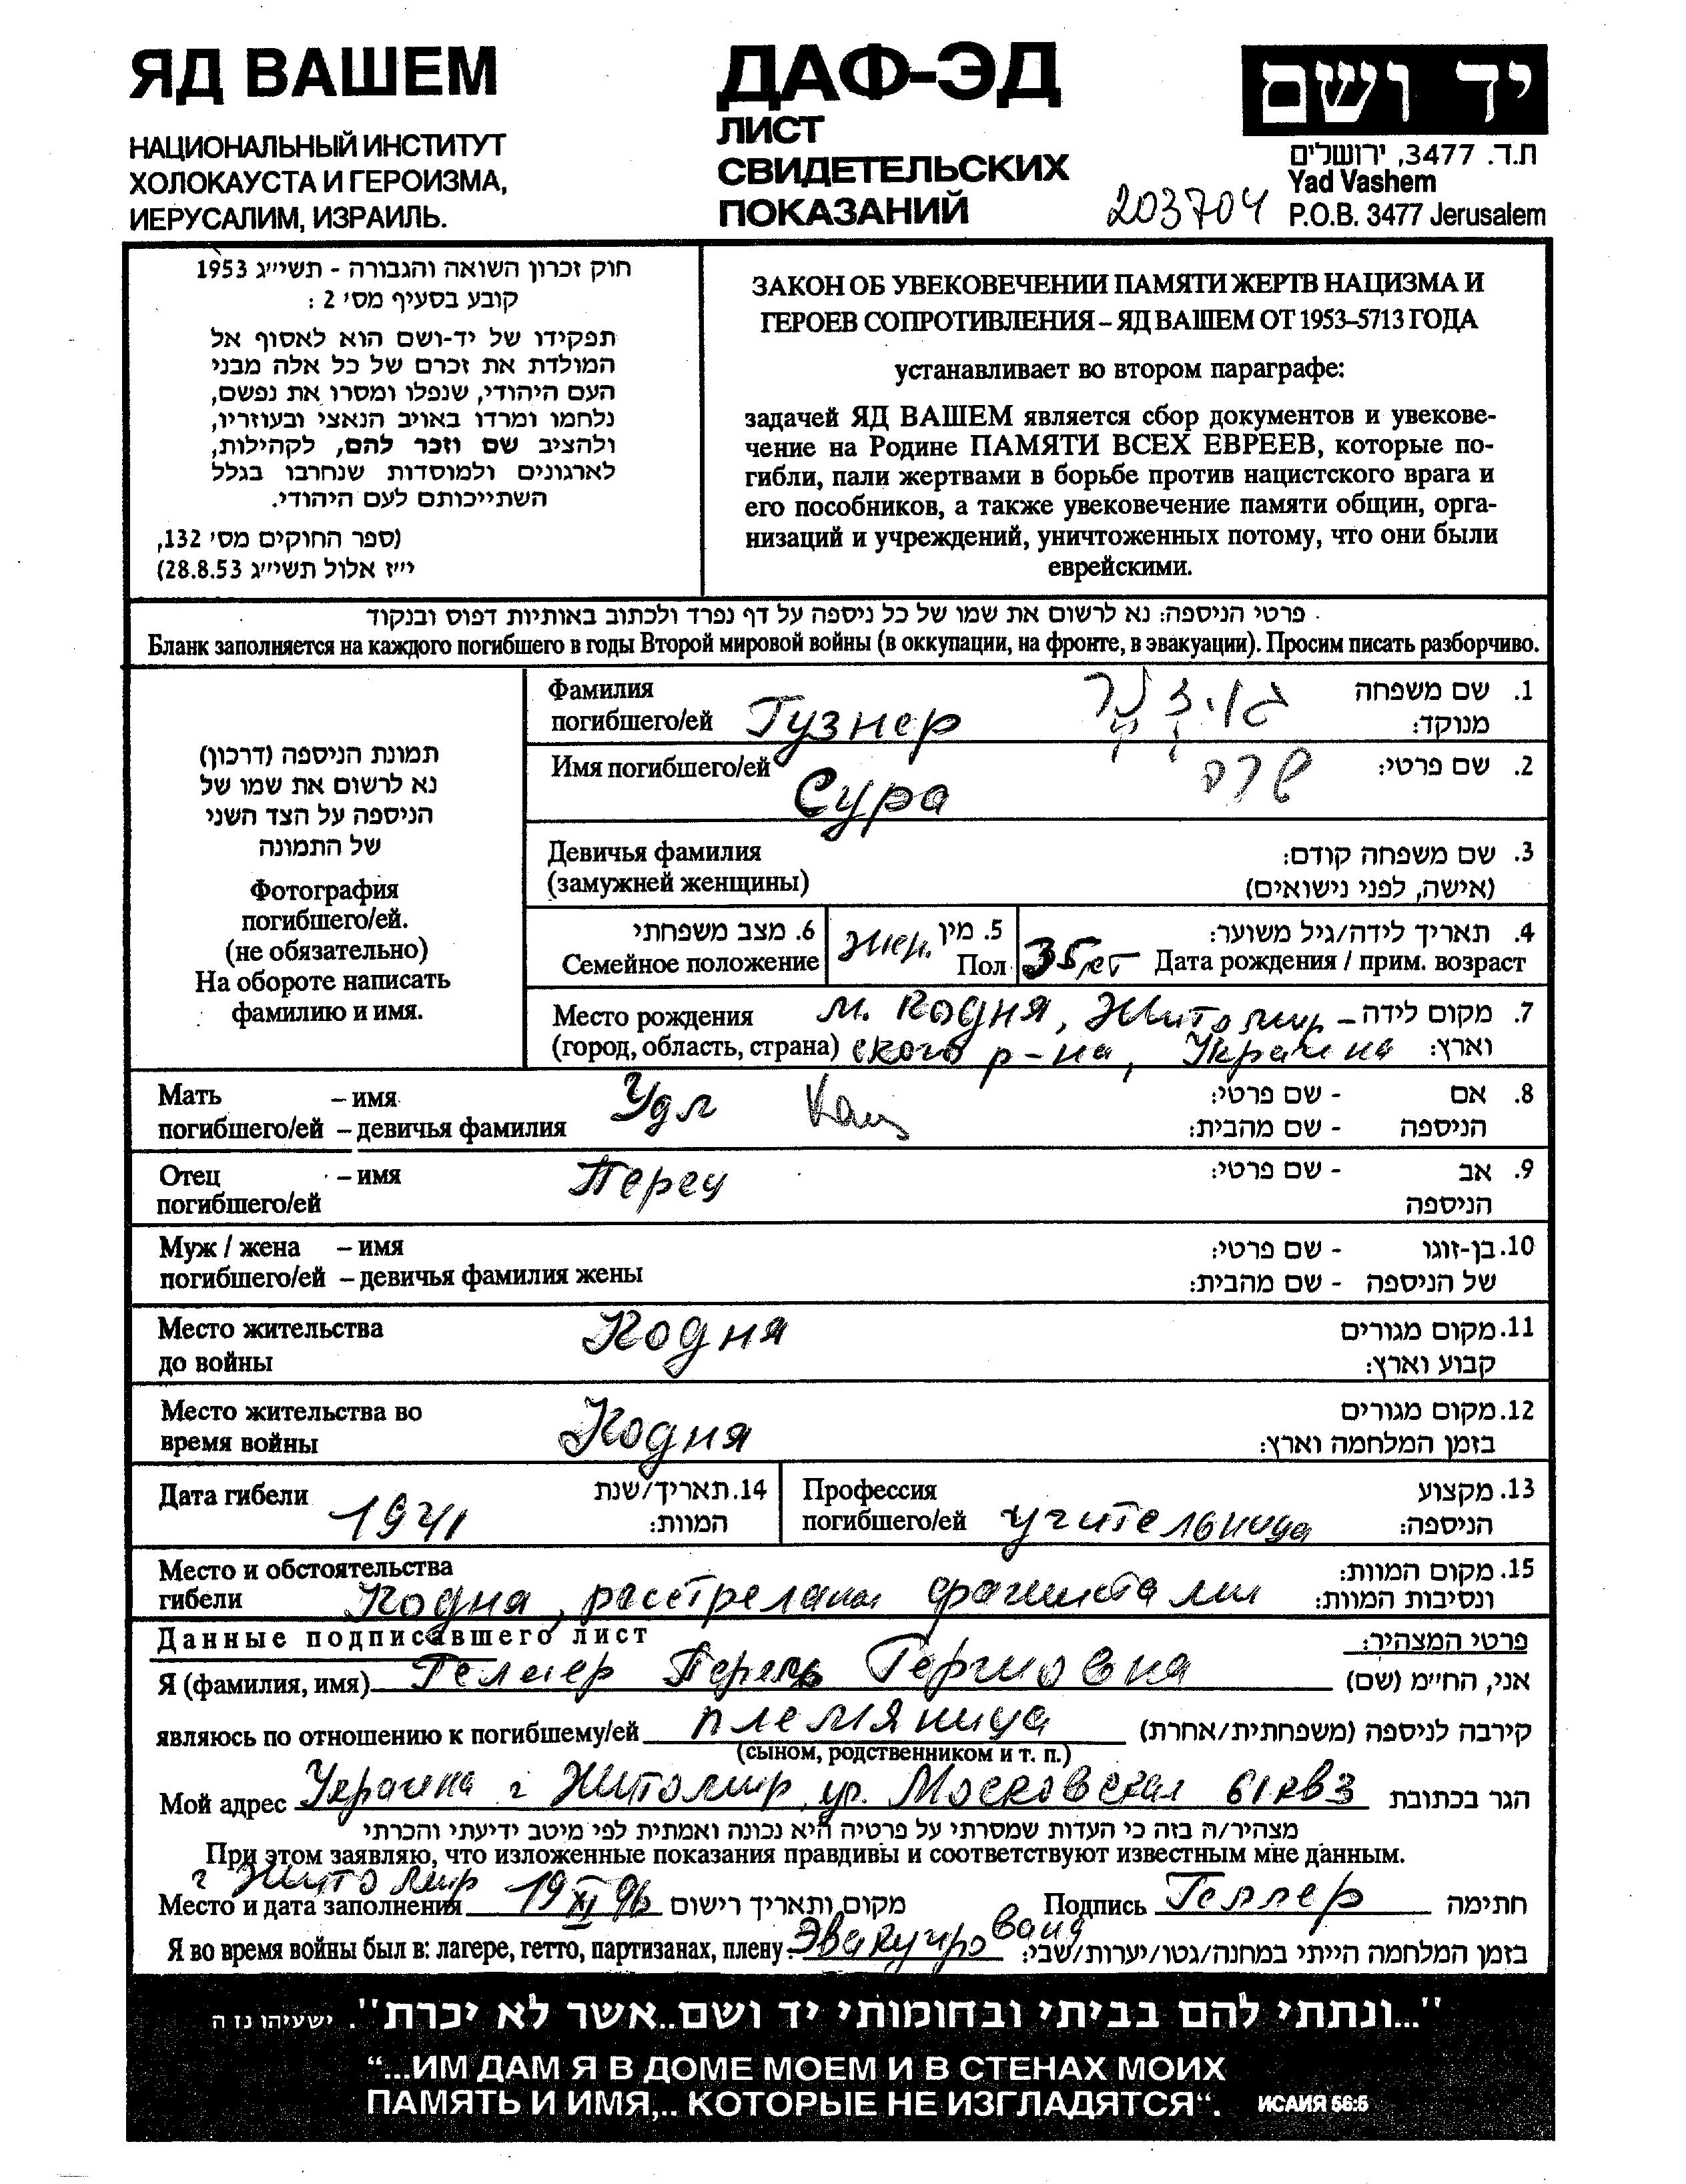 ЯД ВАШЕМ
НАЦИОНАЛЬНЫЙ ИНСТИТУТ
ХОЛОКАУСТА И ГЕРОИЗМА,
ИЕРУСАЛИМ, ИЗРАИЛЬ.
ДАФ-ЭД
ЛИСТ
СВИДЕТЕЛЬСКИХ
ПОКАЗАНИЙ
203704
יד ושם
ת.ד. 3477, ירושלים
Yad Vashem
P.O.B. 3477 Jerusalem
חוק זכרון השואה והגבורה - תשי״ג 1953
קובע בסעיף מס׳ 2 :
תפקידו של יד-ושם הוא לאסוף אל
המולדת את זכרם של כל אלה מבני
העם היהודי, שנפלו ומסרו את נפשם,
נלחמו ומרדו באויב הנאצי ובעוזריו,
ולהציב שם וזכר להם, לקהילות,
לארגונים ולמוסדות שנחרבו בגלל
השתייכותם לעם היהודי.
(ספר החוקים מס׳ 132,
י״ז אלול תשי״ג 28.8.53)
ЗАКОН ОБ УВЕКОВЕЧЕНИИ ПАМЯТИ ЖЕРТВ НАЦИЗМА И
ГЕРОЕВ СОПРОТИВЛЕНИЯ – ЯД ВАШЕМ ОТ 1953–5713 ГОДА
устанавливает во втором параграфе:
задачей ЯД ВАШЕМ является сбор документов и увекове-
чение на Родине ПАМЯТИ ВСЕХ ЕВРЕЕВ, которые по-
гибли, пали жертвами в борьбе против нацистского врага и
его пособников, а также увековечение памяти общин, орга-
низаций и учреждений, уничтоженных потому, что они были
еврейскими.
פרטי הניספה: נא לרשום את שמו של כל ניספה על דף נפרד ולכתוב באותיות דפוס ובנקוד
Бланк заполняется на каждого погибшего в годы Второй мировой войны (в оккупации, на фронте, в эвакуации). Просим писать разборчиво.
תמונת הניספה (דרכון)
נא לרשום את שמו של
הניספה על הצד השני
של התמונה
Фотография
погибшего/ей.
(не обязательно)
На обороте написать
фамилию и имя.
Фамилия 1. שם משפחה
погибшего/ей Гузнер גוזנר מנוקד:
Имя погибшего/ей Сура שרה 2. שם פרטי:
Девичья фамилия 3. שם משפחה קודם:
(замужней женщины) (אישה, לפני נישואים)
6. מצב משפחתי 5. מין 4. תאריך לידה/גיל משוער:
Семейное положение жен. Пол 35 лет Дата рождения / прим. возраст
Место рождения м. Кодня, Житомир- 7. מקום לידה
(город, область, страна) ского р-на, Украина וארץ:
Мать – имя Удл Кац - שם פרטי: 8. אם
погибшего/ей – девичья фамилия - שם מהבית: הניספה
Отец – имя Перец - שם פרטי: 9. אב
погибшего/ей הניספה
Муж / жена – имя - שם פרטי: 10. בן-זוגו
погибшего/ей – девичья фамилия жены - שם מהבית: של הניספה
Место жительства Кодня 11. מקום מגורים
до войны קבוע וארץ:
Место жительства во Кодня 12. מקום מגורים
время войны בזמן המלחמה וארץ:
Дата гибели 1941 14. תאריך/שנת המוות:
Профессия 13. מקצוע
погибшего/ей учительница הניספה:
Место и обстоятельства 15. מקום המוות:
гибели Кодня, расстреляны фашистами ונסיבות המוות:
Данные подписавшего лист פרטי המצהיר:
Я (фамилия, имя) Геллер Перель Гершовна אני, החי״מ (שם)
являюсь по отношению к погибшему/ей племяница קירבה לניספה (משפחתית/אחרת)
(сыном, родственником и т. п.)
Мой адрес Украина г Житомир ул. Московская 61 кв 3 הגר בכתובת
מצהיר/ה בזה כי העדות שמסרתי על פרטיה היא נכונה ואמתית לפי מיטב ידיעתי והכרתי
При этом заявляю, что изложенные показания правдивы и соответствуют известным мне данным.
г Житомир
Место и дата заполнения 19 XI 96 מקום ותאריך רישום Подпись Геллер חתימה
Я во время войны был в: лагере, гетто, партизанах, плену: Эвакуирована בזמן המלחמה הייתי במחנה/גטו/יערות/שבי:
"...ונתתי להם בביתי ובחומותי יד ושם..אשר לא יכרת". ישעיהו נז ה
“...ИМ ДАМ Я В ДОМЕ МОЕМ И В СТЕНАХ МОИХ
ПАМЯТЬ И ИМЯ,.. КОТОРЫЕ НЕ ИЗГЛАДЯТСЯ“. ИСАИЯ 56:5